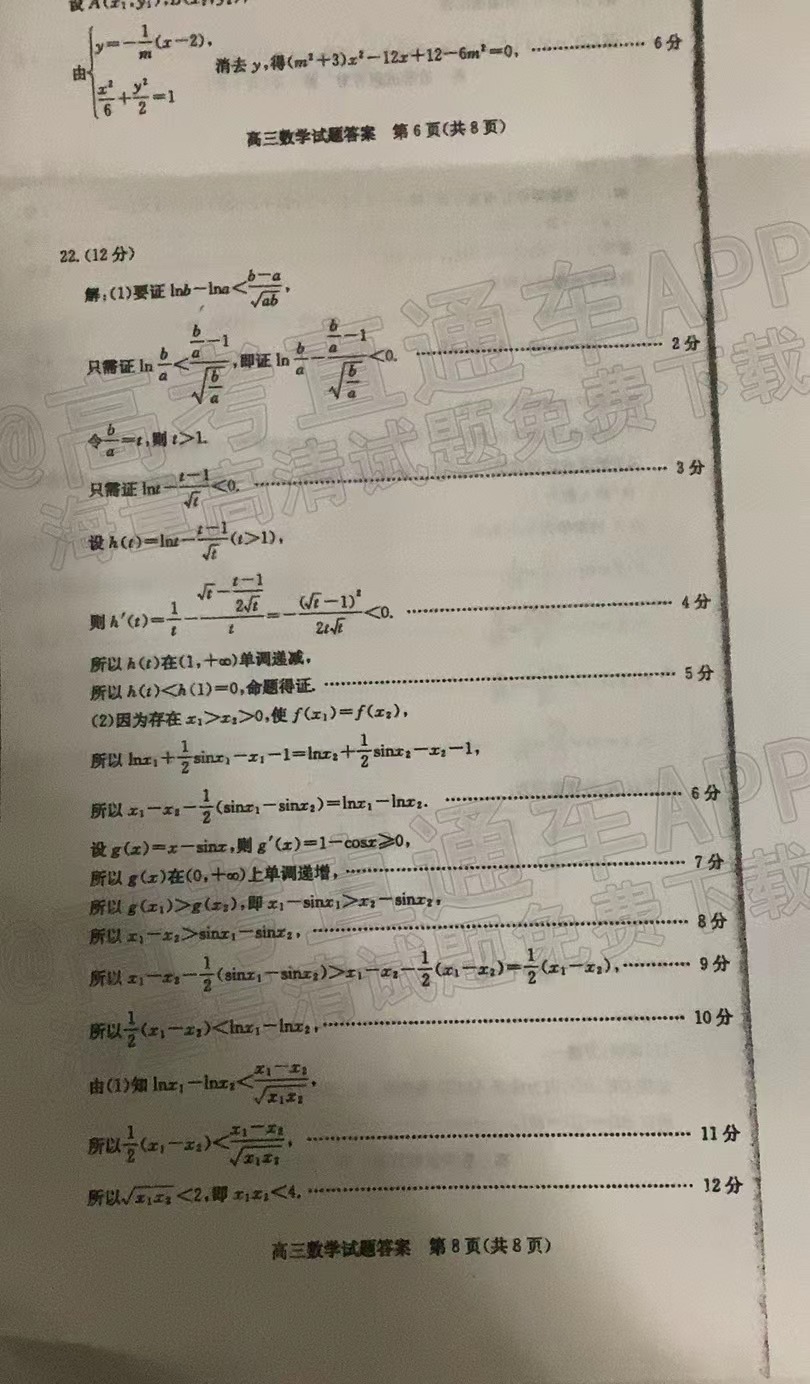 设A(x₁,y₁),B(x₂,y₂),
由{y=-1/m(x-2), x²/6+y²/2=1 消去y,得(m²+3)x²-12x+12-6m²=0, …………………… 6分
高三数学试题答案 第6页(共8页)
22.(12分)
解:(1)要证lnb-lna<(b-a)/√(ab),
只需证ln b/a<(b/a-1)/√(b/a),即证ln b/a-(b/a-1)/√(b/a)<0. …………………… 2分
令b/a=t,则t>1.
只需证lnt-(t-1)/√t<0. …………………… 3分
设h(t)=lnt-(t-1)/√t(t>1),
则h′(t)=1/t-(√t-(t-1)/(2√t))/t=-(√t-1)²/(2t√t)<0. …………………… 4分
所以h(t)在(1,+∞)单调递减,
所以h(t)<h(1)=0,命题得证. …………………… 5分
(2)因为存在x₁>x₂>0,使f(x₁)=f(x₂),
所以lnx₁+1/2sinx₁-x₁-1=lnx₂+1/2sinx₂-x₂-1,
所以x₁-x₂-1/2(sinx₁-sinx₂)=lnx₁-lnx₂. …………………… 6分
设g(x)=x-sinx,则g′(x)=1-cosx≥0,
所以g(x)在(0,+∞)上单调递增, …………………… 7分
所以g(x₁)>g(x₂),即x₁-sinx₁>x₂-sinx₂,
所以x₁-x₂>sinx₁-sinx₂, …………………… 8分
所以x₁-x₂-1/2(sinx₁-sinx₂)>x₁-x₂-1/2(x₁-x₂)=1/2(x₁-x₂), ………… 9分
所以1/2(x₁-x₂)<lnx₁-lnx₂, …………………… 10分
由(1)知lnx₁-lnx₂<(x₁-x₂)/√(x₁x₂),
所以1/2(x₁-x₂)<(x₁-x₂)/√(x₁x₂), …………………… 11分
所以√(x₁x₂)<2,即x₁x₂<4. …………………… 12分
高三数学试题答案 第8页(共8页)
@高考直通车APP
海量高清试题免费下载
高考直通车APP
高清试题免费下载